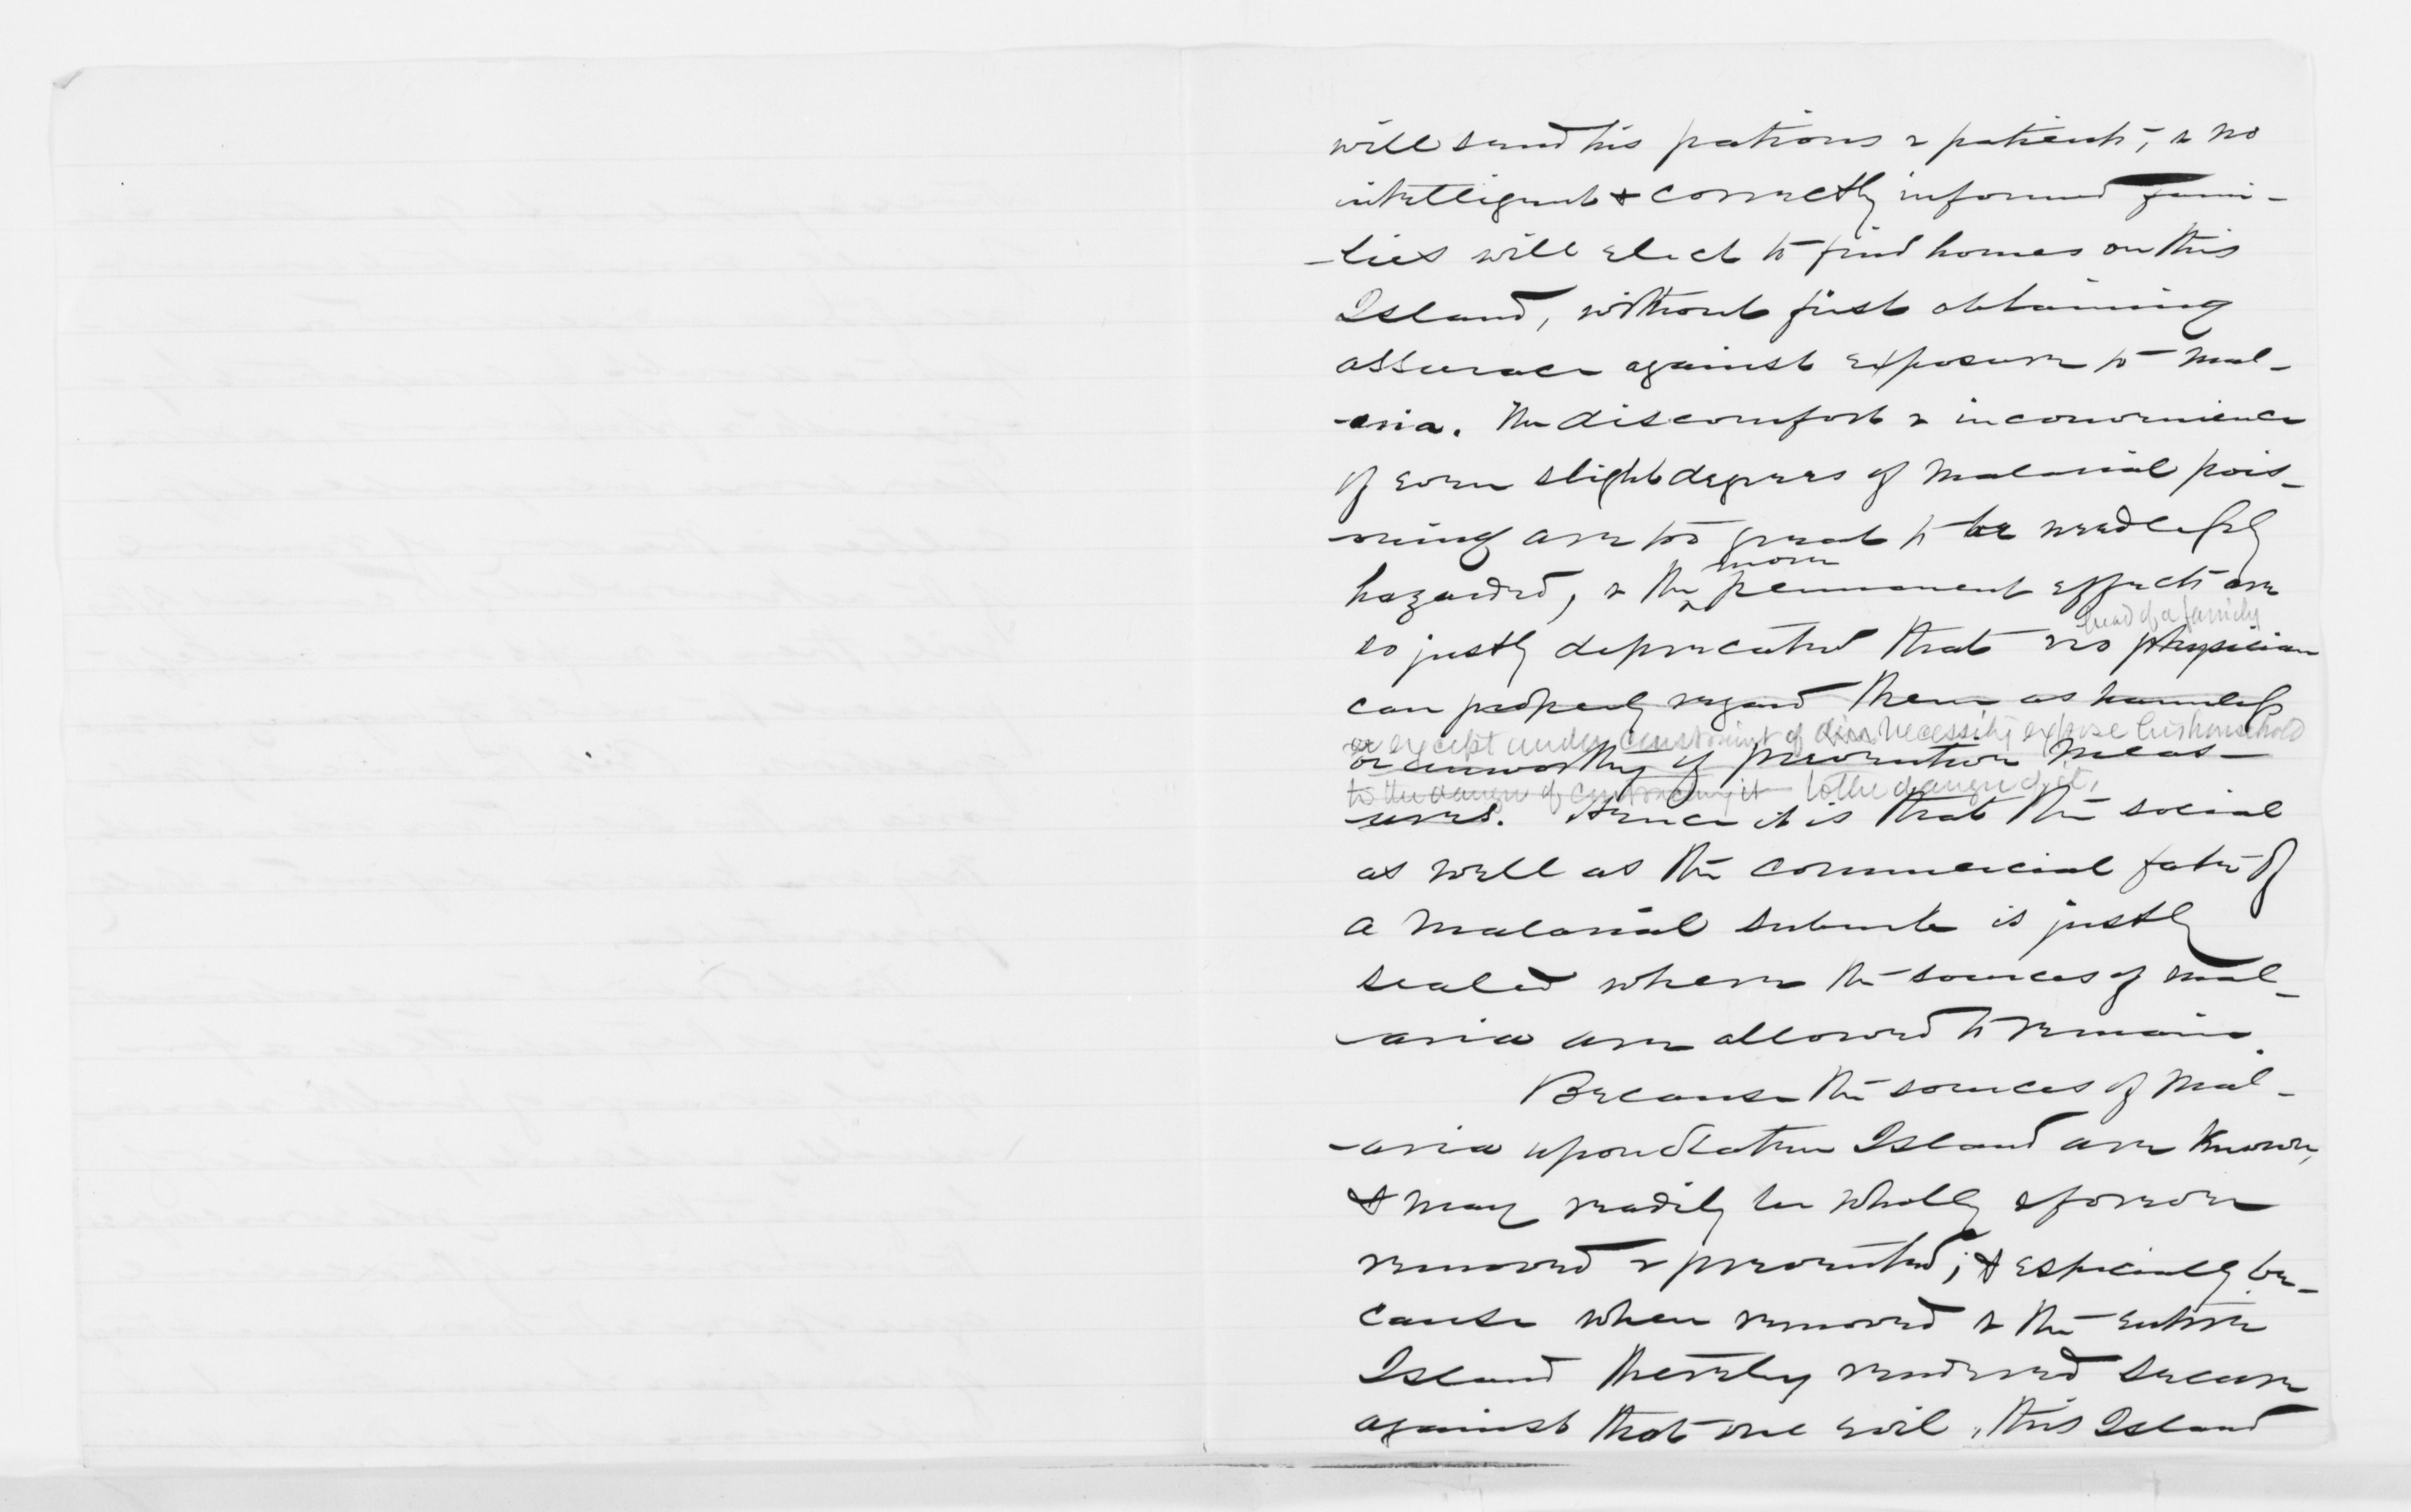 will send his patrons & patients; & no
intelligent & correctly informed fami-
-lies will elect to find homes on this
Island, without first obtaining
assurance against exposure to mal-
-aria. The discomfort & inconvenience
of even slight degrees of malarial pois-
-oning are too great to be needlessly
hazarded, & the more permanent effects are
head of a family
so justly deprecated that no physician
can properly regard them as harmless
or except under constraint of dire necessity expose his household
or unworthy of preventive meas-
to the danger of contracting it to the danger of it,
-ures. Hence it is that the social
as well as the commercial fate of
a malarial suburb is justly
sealed where the sources of mal-
-aria are allowed to remain.
Because the sources of mal-
-aria upon Staten Island are known,
& may readily be wholly & forever
removed & prevented; & especially be-
cause when removed & the entire
Island thereby rendered secure
against that one evil, this Island